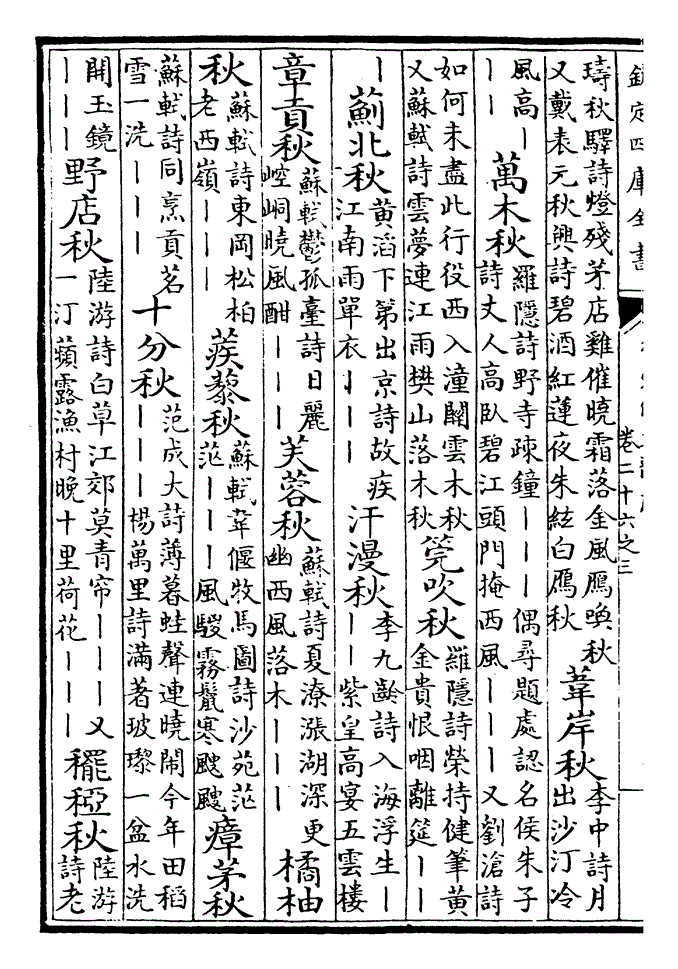 欽定四庫全書 卷二十六之三
璹秋驛詩燈殘茅店雞催曉霜落金風鴈喚秋
又戴表元秋興詩碧酒紅蓮夜朱絃白鴈秋
葦岸秋
李中詩月
出沙汀冷
風高丨
丨丨
萬木秋
羅隱詩野寺疎鐘丨丨丨偶尋題處認名侯朱子
詩丈人高臥碧江頭門掩西風丨丨丨又劉滄詩
如何未盡此行役西入潼關雲木秋
又蘇軾詩雲夢連江雨樊山落木秋
筦吹秋
羅隱詩榮持健筆黃
金貴恨咽離筵丨丨
丨
薊北秋
黃滔下第出京詩故疾
江南雨單衣丨丨丨
汗漫秋
李九齡詩入海浮生丨
丨丨紫皇高宴五雲樓
章貢秋
蘇軾鬱孤臺詩日麗
崆峒曉風酣丨丨丨
芙蓉秋
蘇軾詩夏潦漲湖深更
幽西風落木丨丨丨
橘柚
秋
蘇軾詩東岡松柏
老西嶺丨丨丨
蒺藜秋
蘇軾韋偃牧馬圖詩沙苑茫
茫丨丨丨風騣霧鬣寒颼颼
瘴茅秋
蘇軾詩同烹貢茗
雪一洗丨丨丨
十分秋
范成大詩薄暮蛙聲連曉鬧今年田稻
丨丨丨楊萬里詩滿著玻瓈一盆水洗
開玉鏡
丨丨丨
野店秋
陸游詩白草江郊莫青帘丨丨丨又
一汀蘋露漁村晚十里荷花丨丨丨
穲稏秋
陸游
詩老